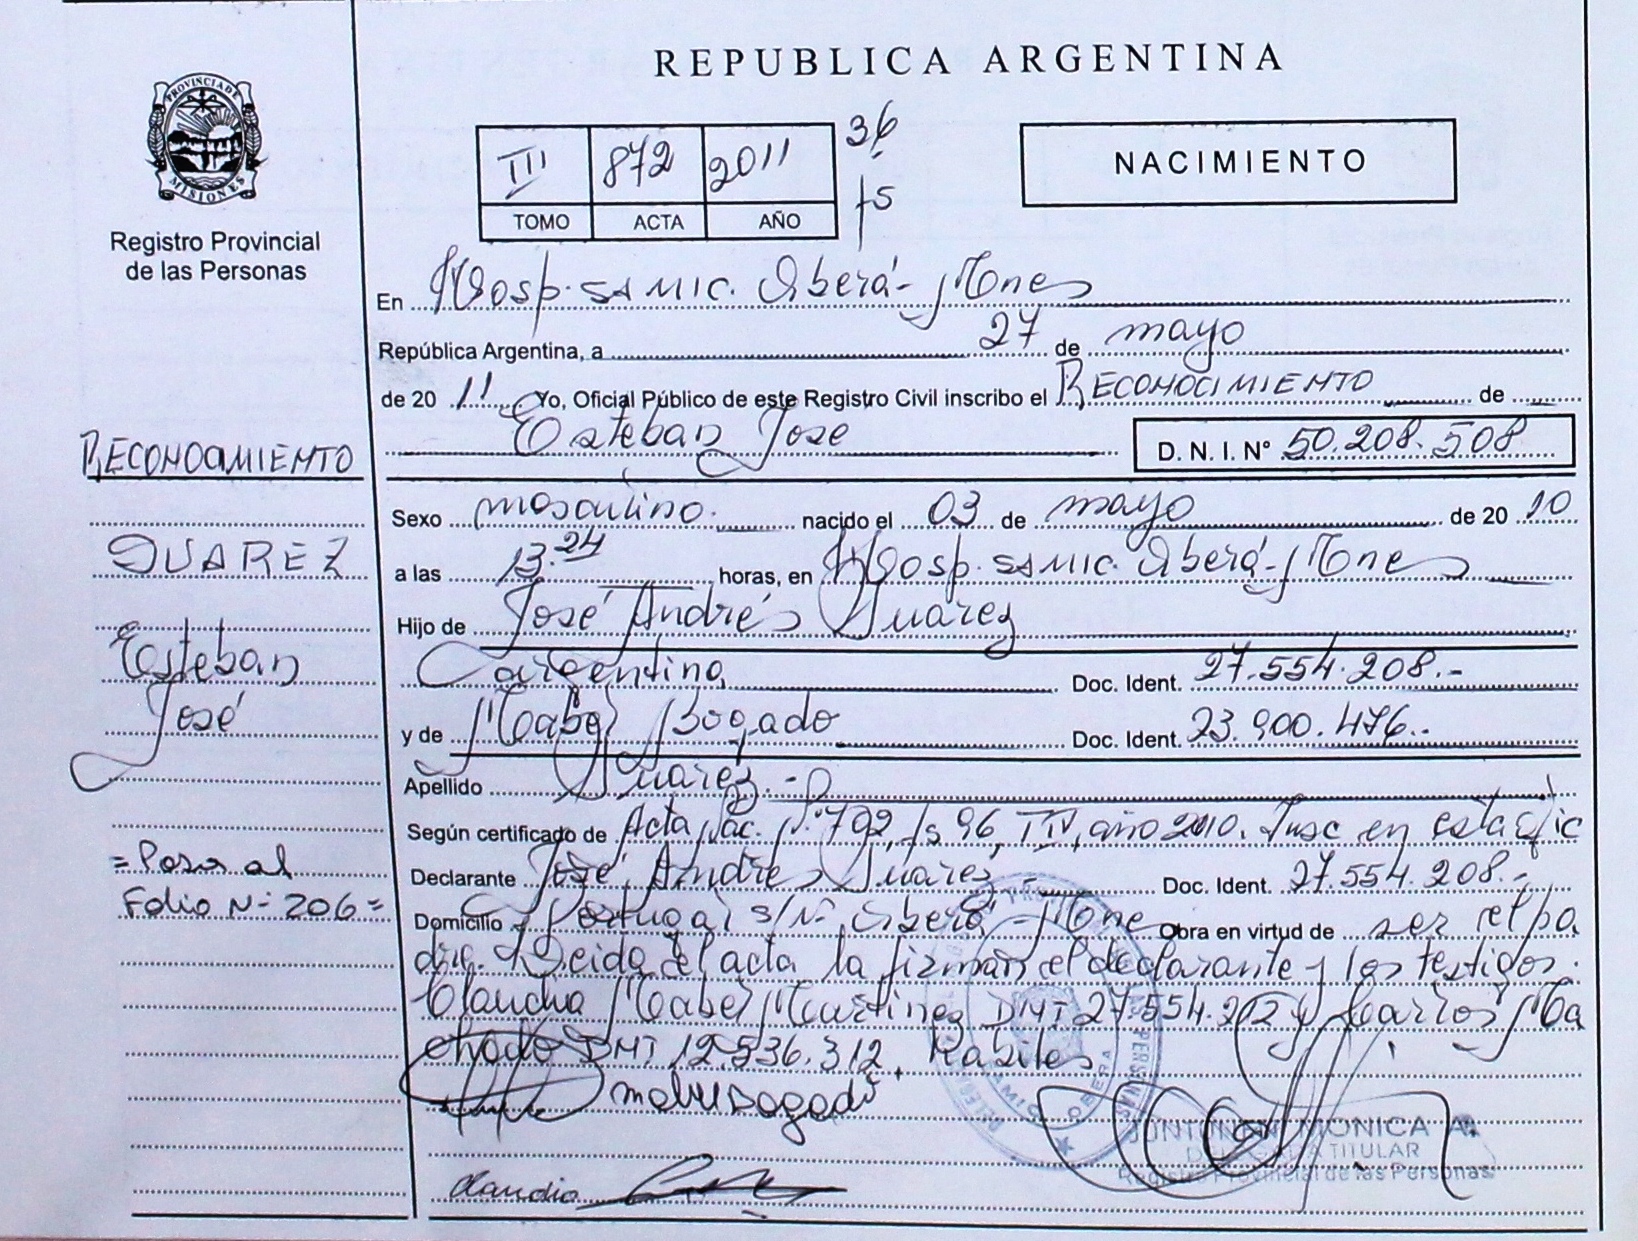 REPUBLICA ARGENTINA
PROVINCIA DE
MISIONES
Registro Provincial
de las Personas
III 872 2011
TOMO ACTA AÑO
36
fs
NACIMIENTO
En Hosp. SAMIC. Oberá - Mnes
República Argentina, a 27 de mayo
de 2011 Yo, Oficial Público de este Registro Civil inscribo el RECONOCIMIENTO de
Esteban José
D. N. I. Nº 50.208.508
RECONOCIMIENTO
SUAREZ
Esteban
José
= Pasa al
Folio Nº 206 =
Sexo masculino. nacido el 03 de mayo de 2010
a las 13.24 horas, en Hosp. SAMIC. Oberá - Mnes
Hijo de José Andrés Suárez
argentino, Doc. Ident. 27.554.208.-
y de Mabel Bogado Doc. Ident. 23.900.476.-
Apellido Suárez.-
Según certificado de Acta Nac. Nº 792, fs 96, T IV, año 2010. Insc en esta ofic
Declarante José Andrés Suárez Doc. Ident. 27.554.208.-
Domicilio Portugal s/Nº Oberá - Mnes Obra en virtud de ser el pa
dre. Leída el acta la firman el declarante y los testigos.
Claudia Mabel Martínez DNI 27.554.212 y Carlos Ma
chado DNI 12.536.312,
Mabel Bogado
MONICA A.
DELEGADA TITULAR
Registro Provincial de las Personas
Claudia